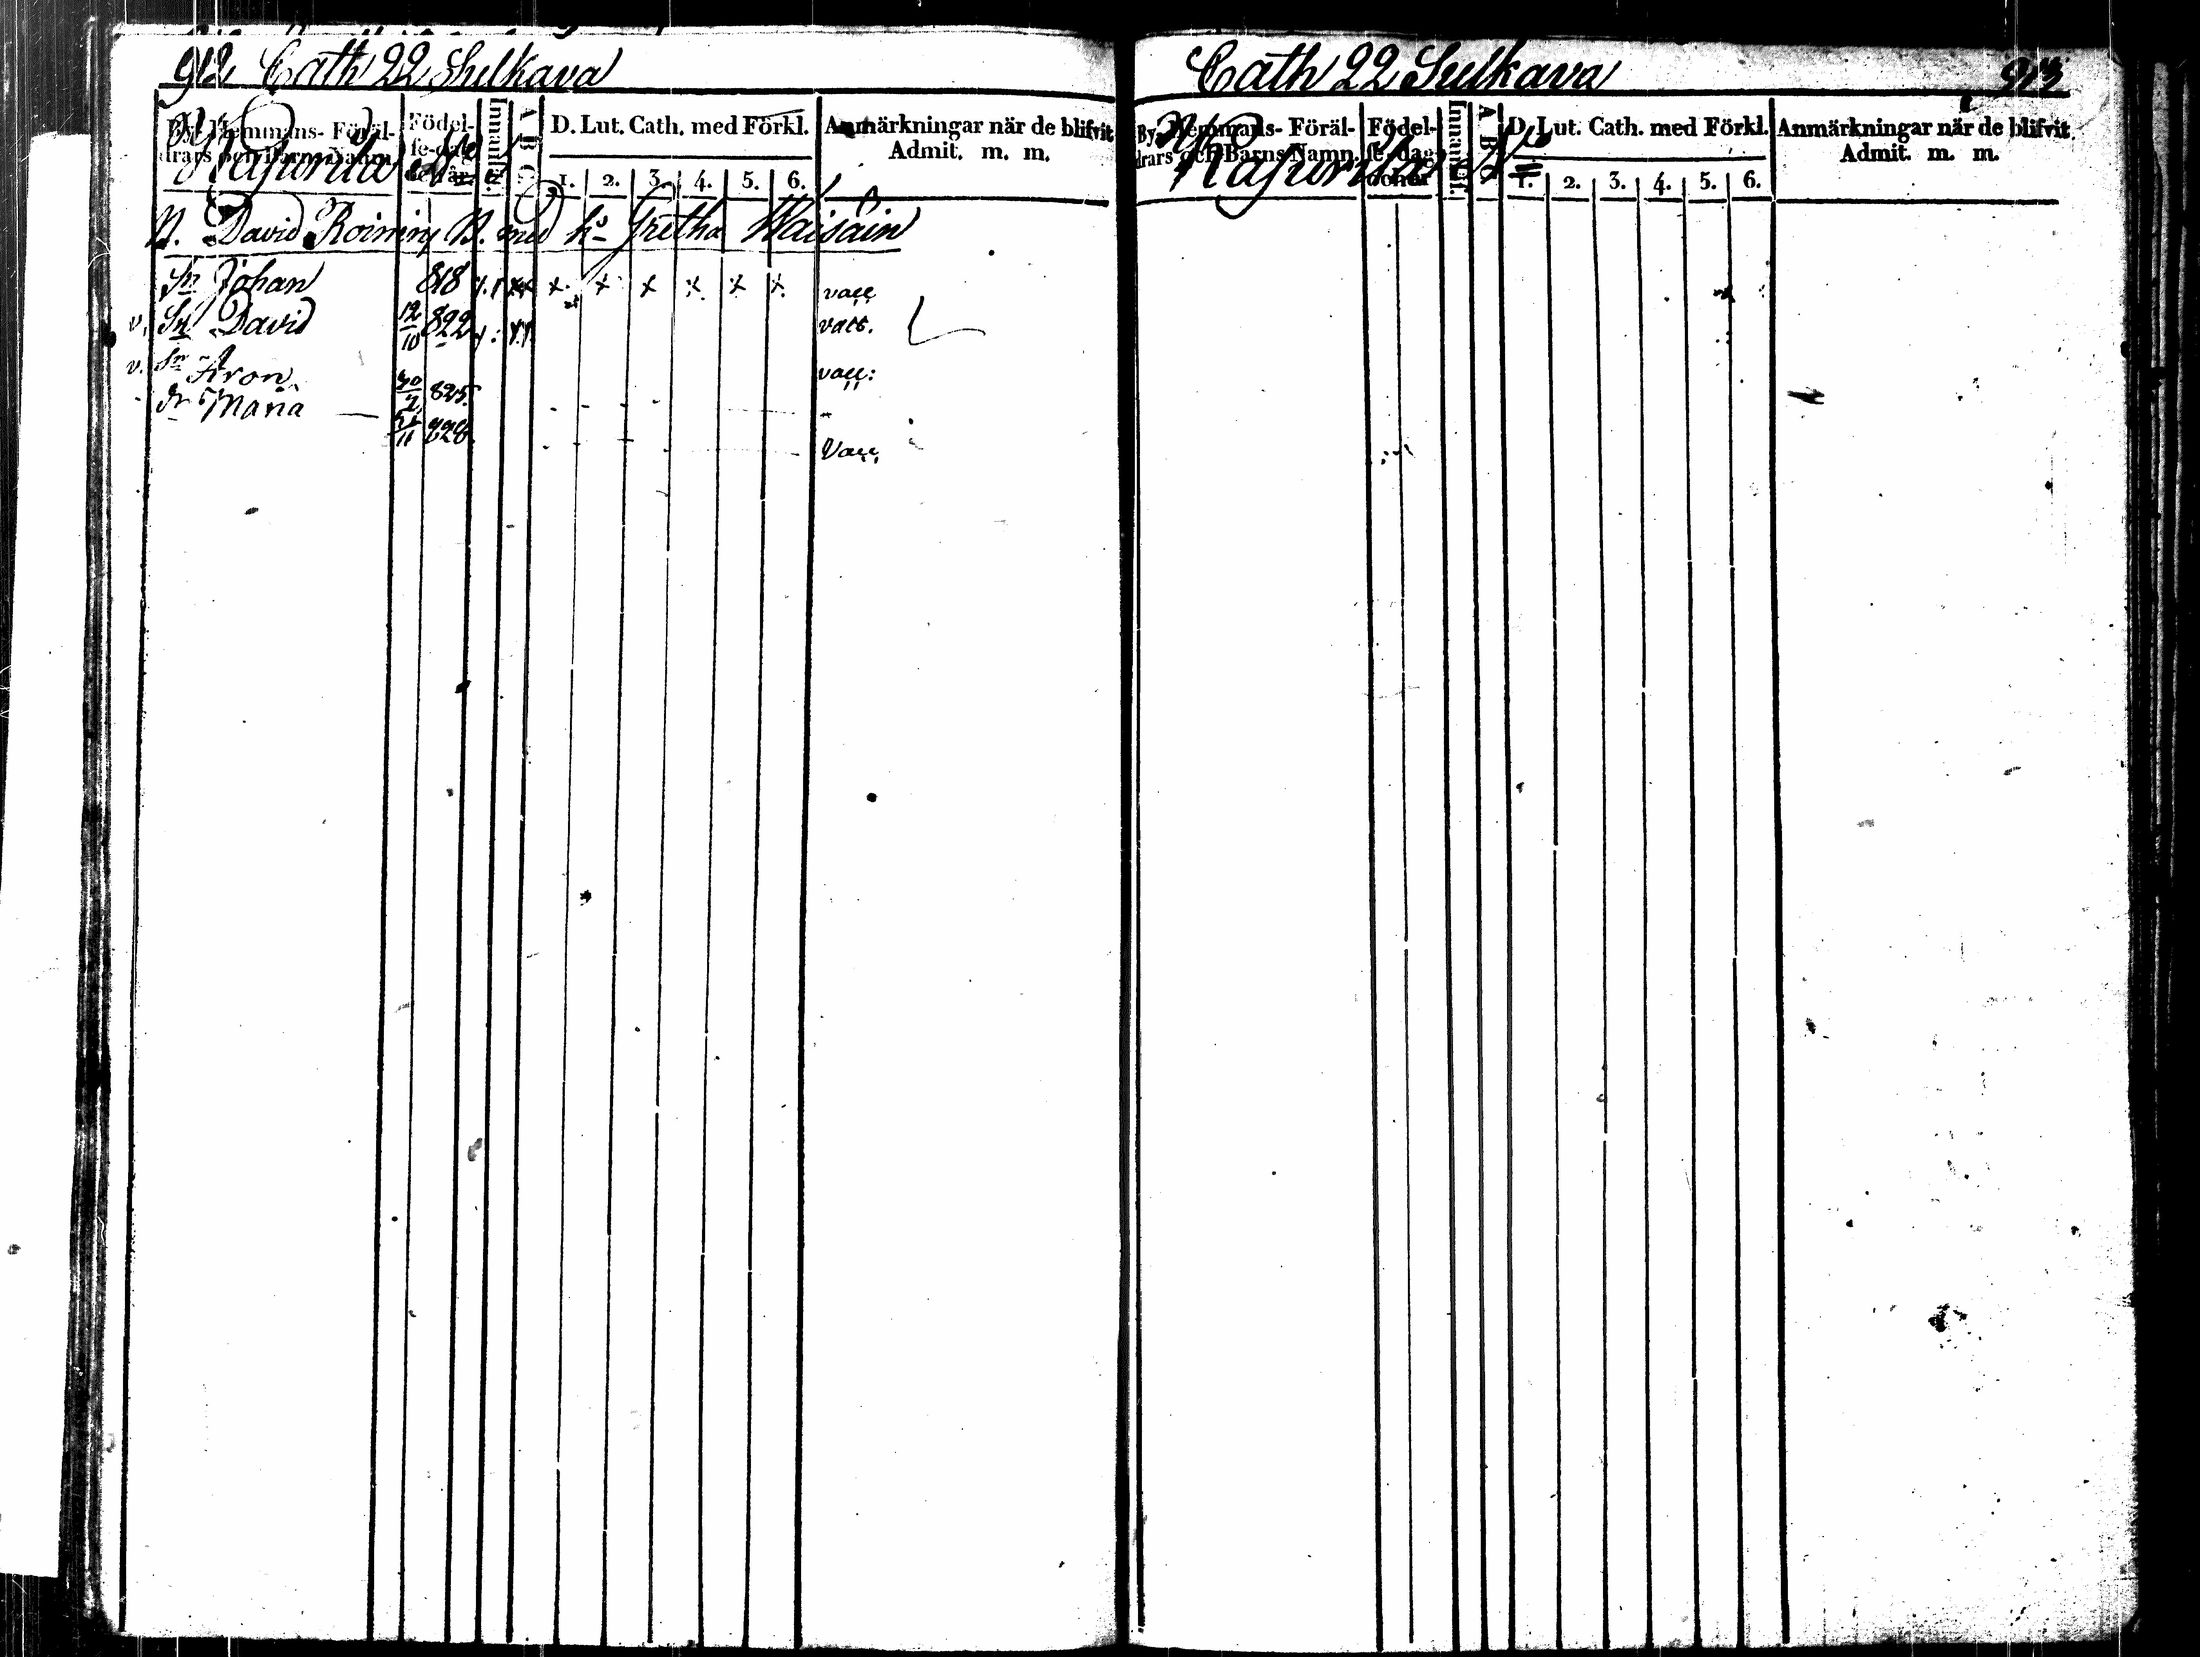 912 Cath 22 Sulkava
By, Hemmans- Föräl-
drars och Barns Namn.
Födel-
se-dag
och år
Innanläs.
A B C
D. Lut. Cath. med Förkl.
1. 2. 3. 4. 5. 6.
Anmärkningar när de blifvit
Admit. m. m.
B. David Roining B. med h. Gretha Waisain
Sn Johan 818 x x x x x x vacc
v. Sn David 12/10 822 vacc.
v. Sn Aron 30/2 825. vacc:
dr Maria 11 828 Vacc.
Cath 22 Sulkava 913
By, Hemmans- Föräl-
drars och Barns Namn.
Födel-
se-dag
och år
Innanläs.
A B C
D. Lut. Cath. med Förkl.
1. 2. 3. 4. 5. 6.
Anmärkningar när de blifvit
Admit. m. m.